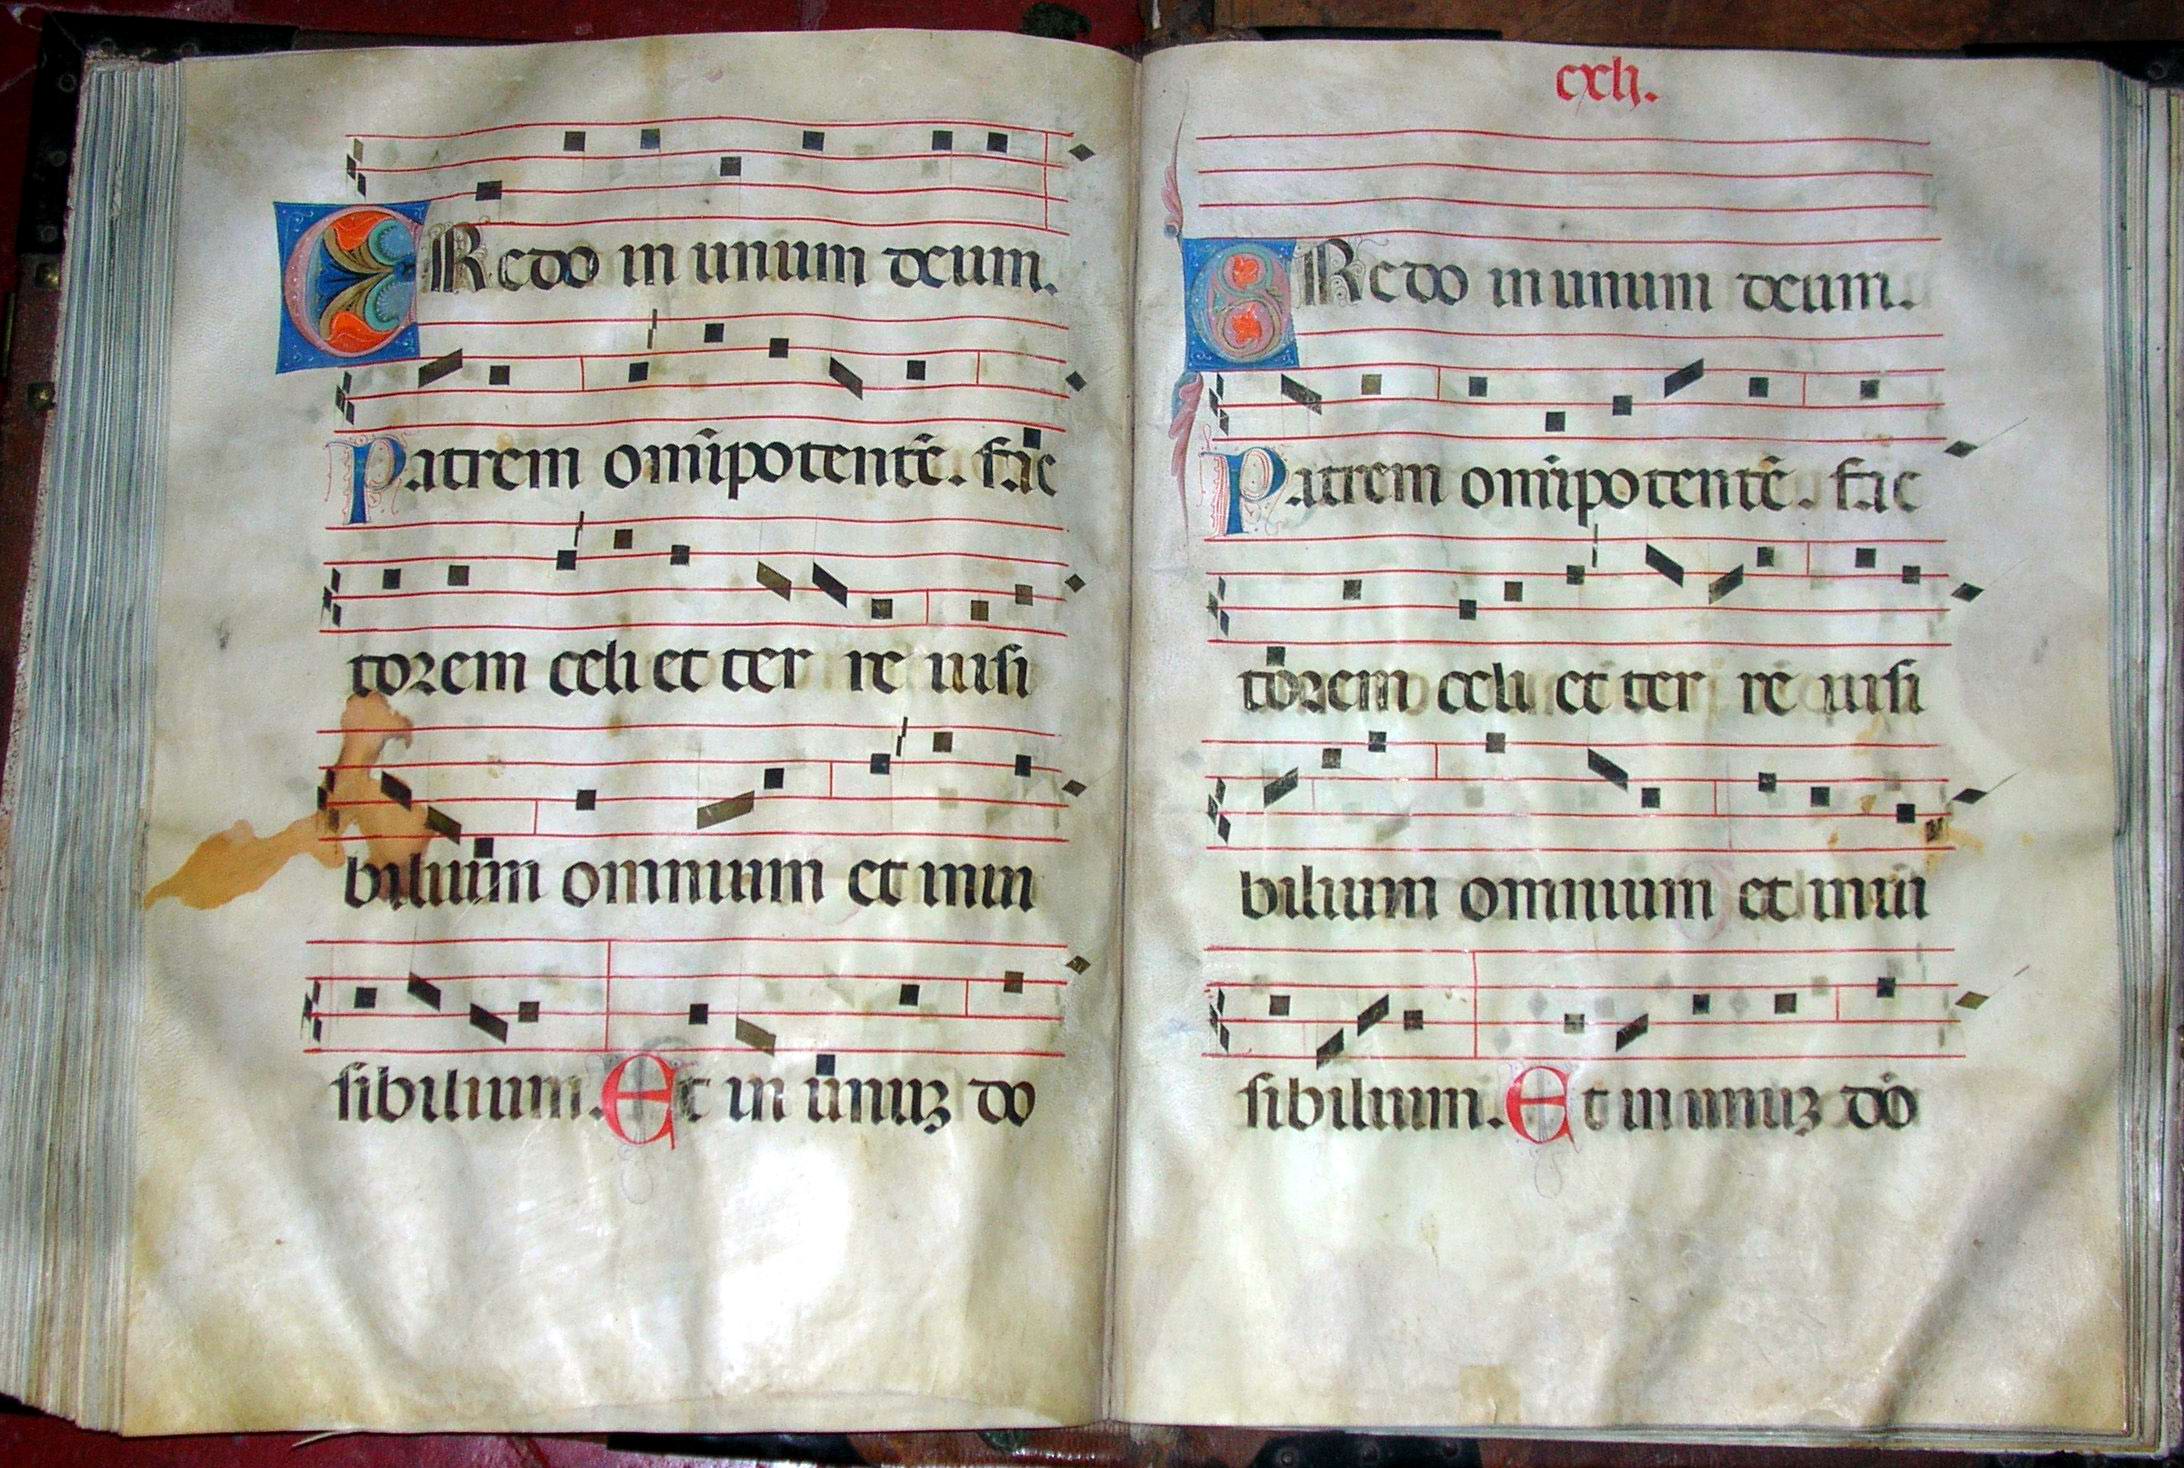 CRedo in unum deum.
Patrem om̅ipotente̅. fac
torem celi et ter re uisi
bilium omnium et inui
sibilium. Et in unuꝫ do
cxlj.
CRedo in unum deum.
Patrem om̅ipotente̅. fac
torem celi et ter re uisi
bilium omnium et inui
sibilium. Et in unuꝫ do